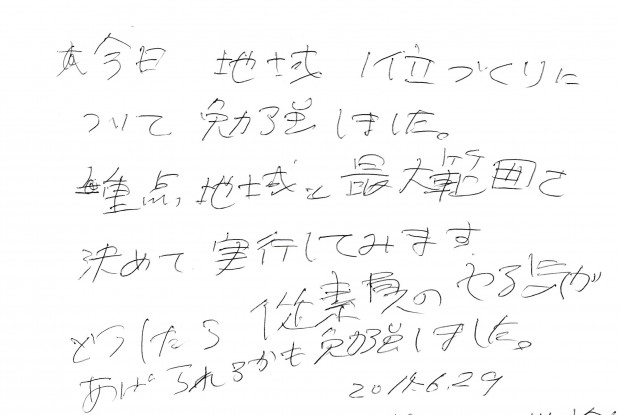 今日 地域 1位づくりに
ついて 勉強しました。
重点地域と最大範囲を
決めて 実行してみます
従業員のやる気が
どうしたら
あげられるかも勉強しました。